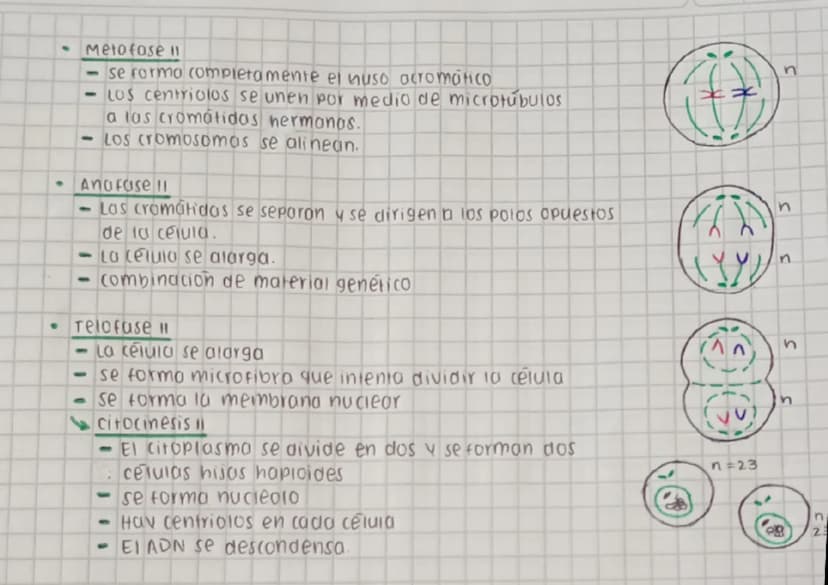 • Metafase II
- se forma completamente el huso acromático
- Los centriolos se unen por medio de microtúbulos
a las cromátidas hermanas.
- Los cromosomas se alinean.
n
• Anafase II
- Las cromátidas se separan y se dirigen a los polos opuestos
de la célula.
- La célula se alarga.
- combinación de material genético
n
n
• Telofase II
- La célula se alarga
- se forma microfibra que intenta dividir la célula
- se forma la membrana nuclear
n
n
citocinesis II
- El citoplasma se divide en dos y se forman dos
células hijas haploides
- se forma nucleolo
- Hay centriolos en cada célula
- El ADN se descondensa
n = 23
n